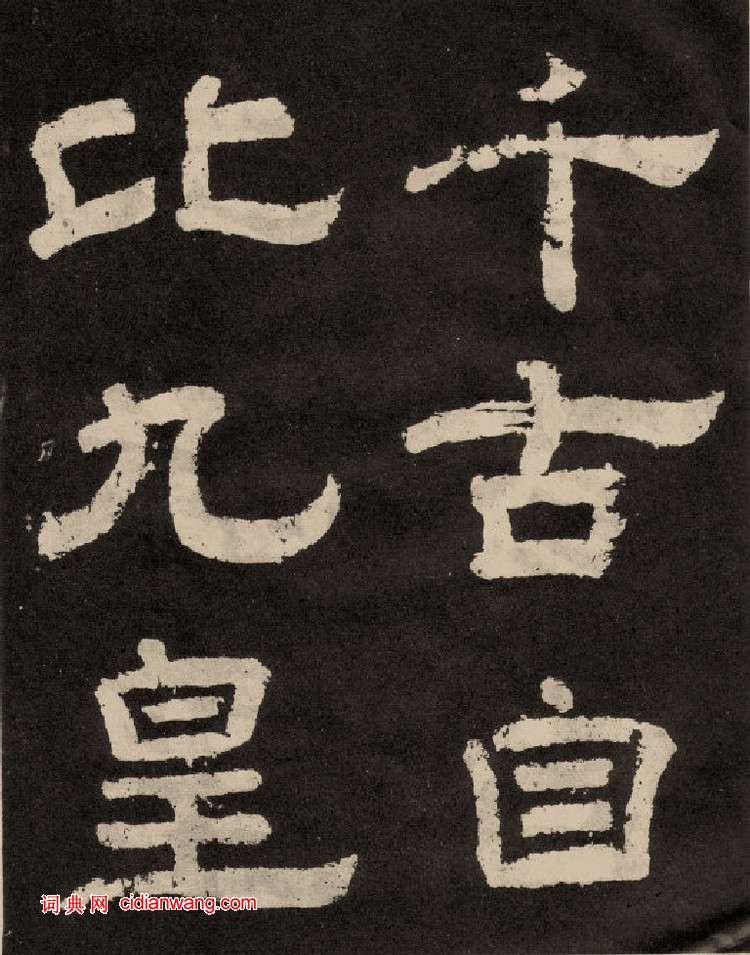 千古自
比九皇
词典网 cidianwang.com